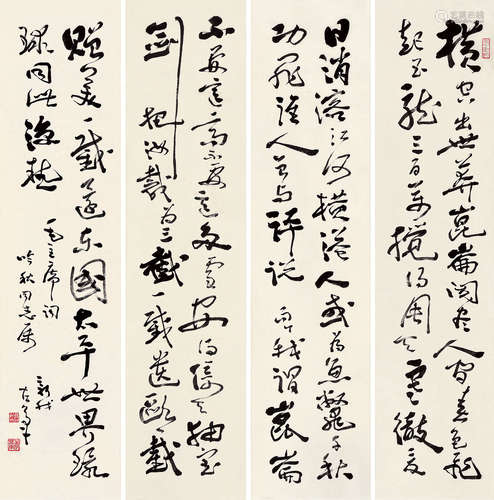 横空出世莽崑崙阅尽人间春色飛
起玉龍三百万搅得周天寒徹夏
日消溶江河横溢人或为鱼鳖千秋
功罪谁人曾与评说而今我謂崑崙
不要這高不要這多雪安得倚天抽宝
剑把汝裁为三截一截遗欧一截
赠美一截還东國太平世界环
球同此凉热
毛主席词
吟秋同志属